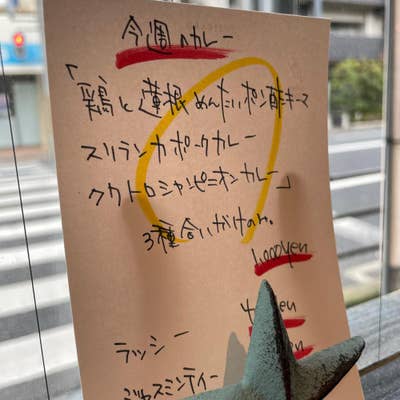 今週のカレー
「鶏と蓮根めんたいポン酢キーマ
スリランカポークカレー
ククトロシャンピニオンカレー」
3種合いがけのみ。
yen
ラッシー
yen
ジャスミンティー